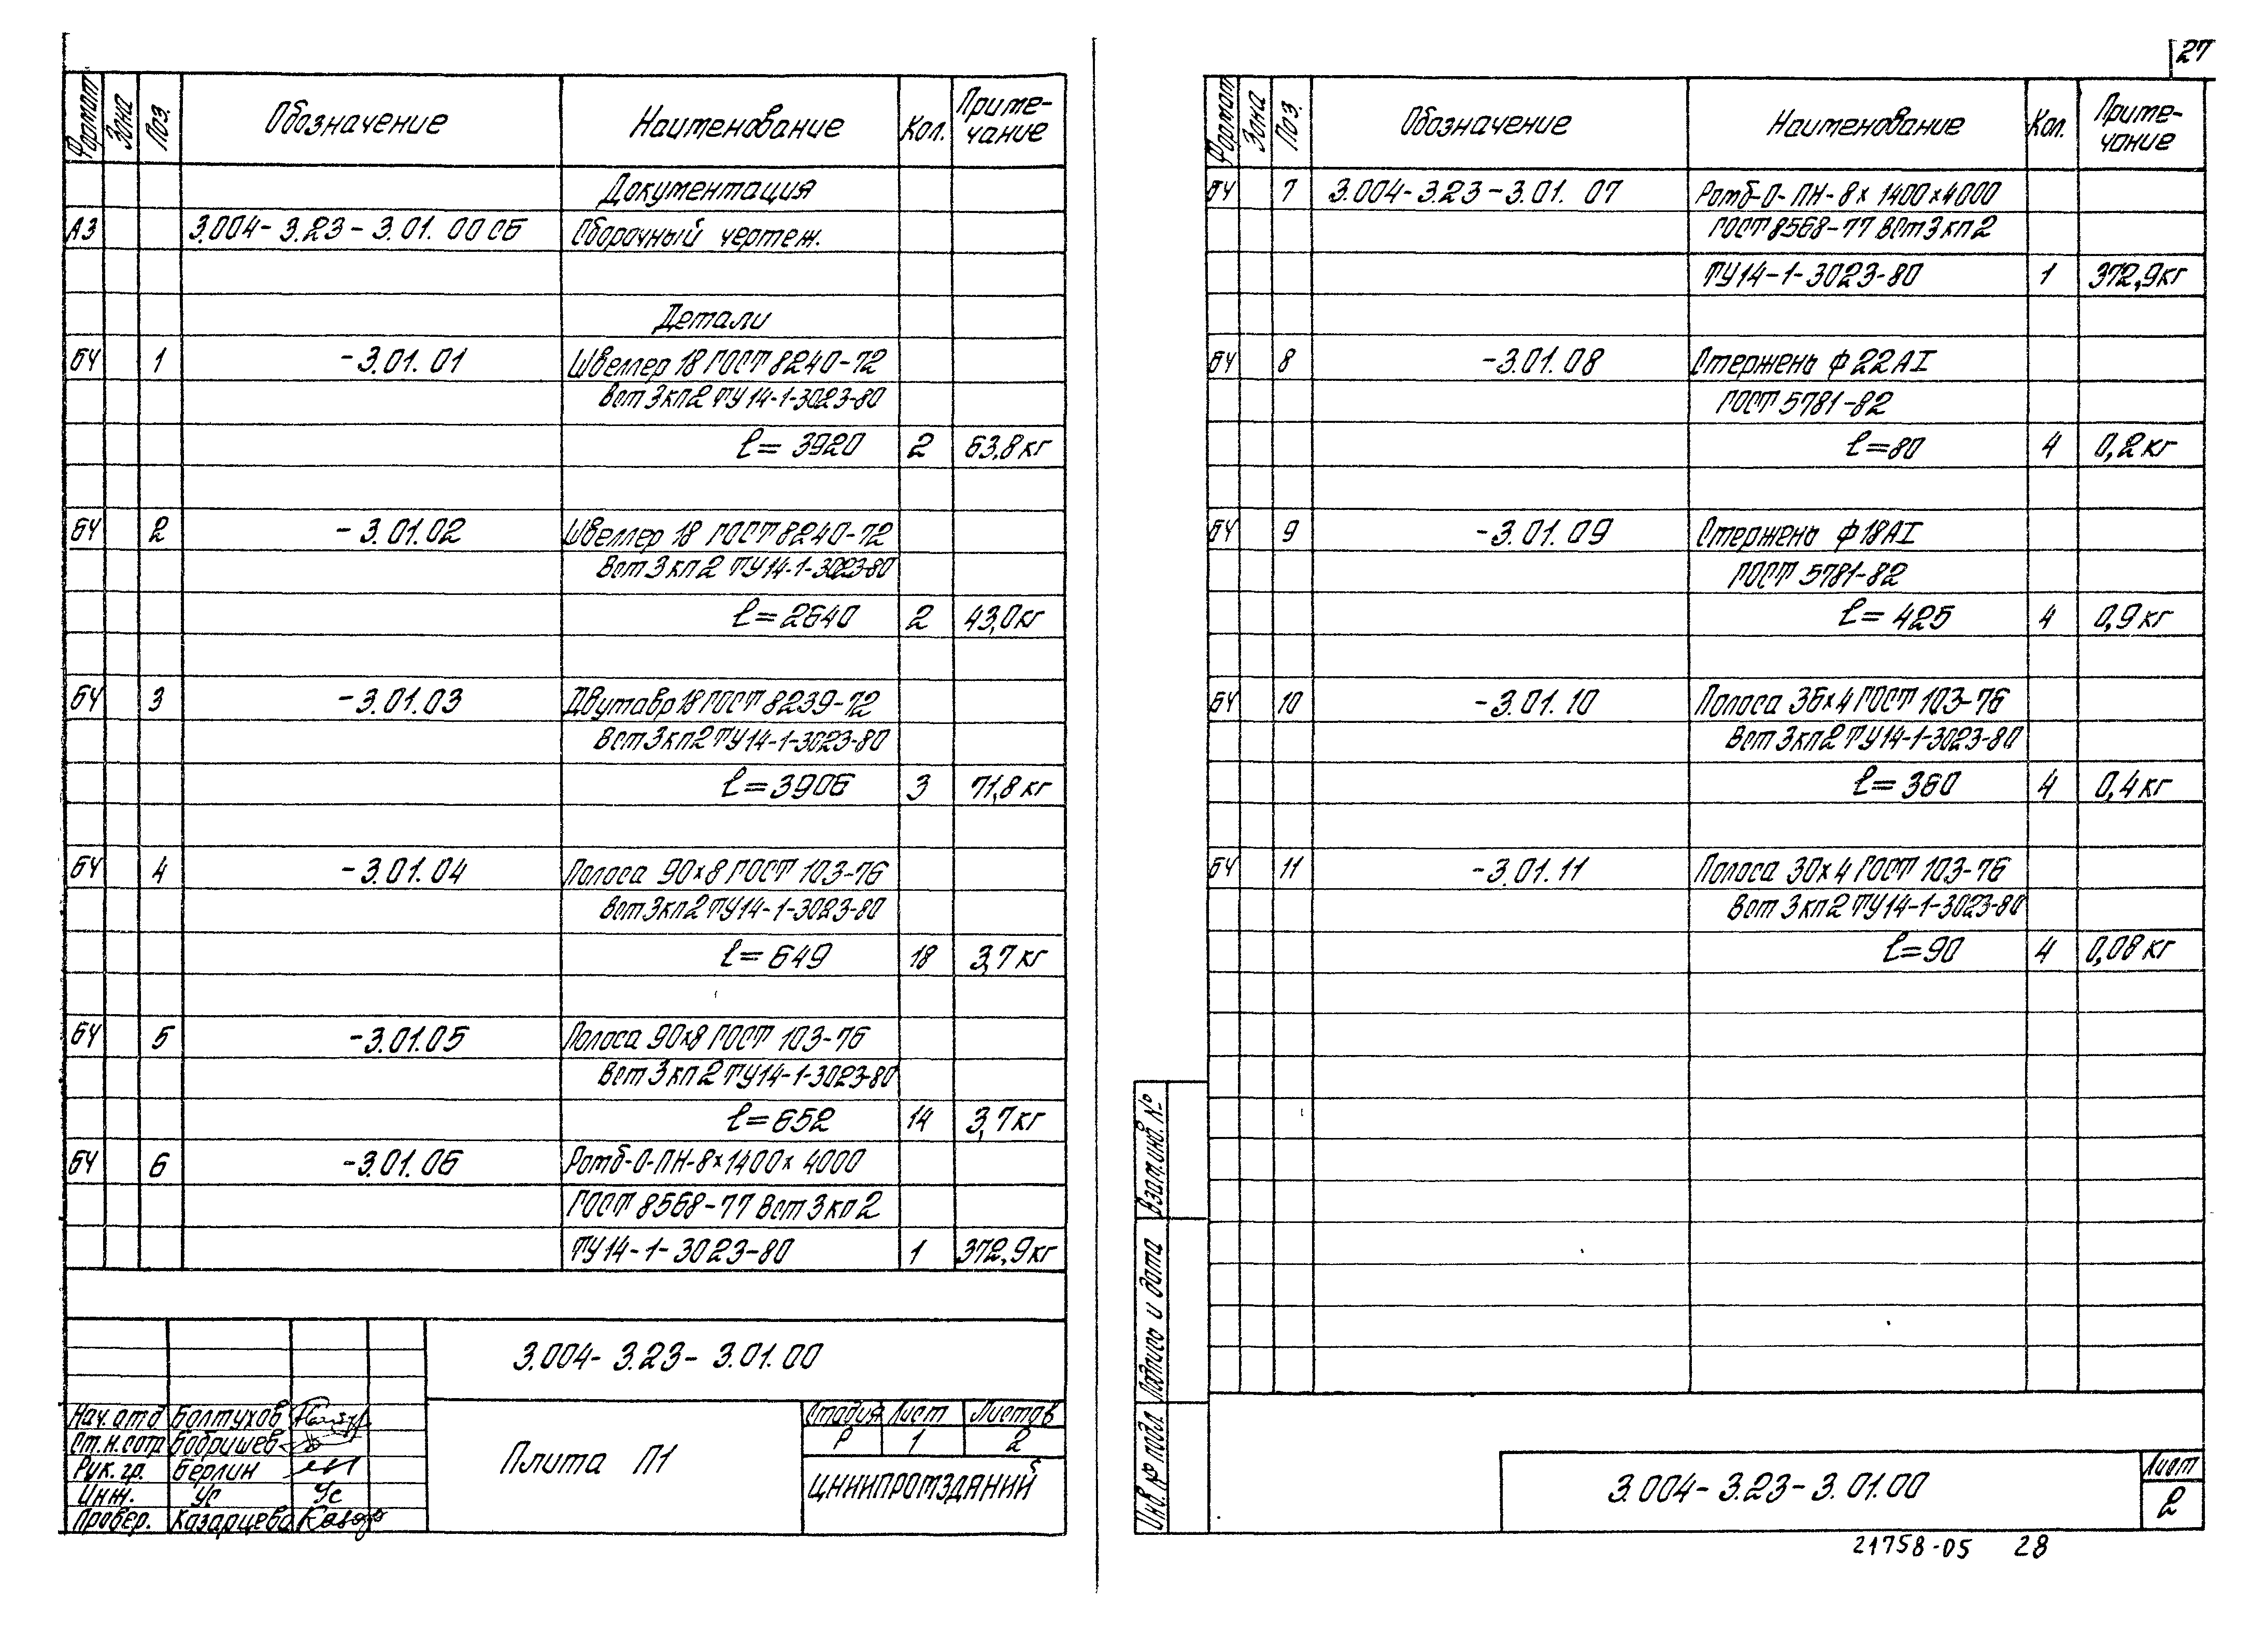 Формат Зона Поз. Обозначение Наименование Кол. Приме-
чание
Документация
А3 3.004-3.23-3.01.00СБ Сборочный чертеж.
Детали
БЧ 1 -3.01.01 Швеллер 18 ГОСТ 8240-72
Вст3кп2 ТУ14-1-3023-80
ℓ=3920 2 63,8кг
БЧ 2 -3.01.02 Швеллер 18 ГОСТ 8240-72
Вст3кп2 ТУ14-1-3023-80
ℓ=2640 2 43,0кг
БЧ 3 -3.01.03 Двутавр 18 ГОСТ 8239-72
Вст3кп2 ТУ14-1-3023-80
ℓ=3906 3 71,8кг
БЧ 4 -3.01.04 Полоса 90×8 ГОСТ 103-76
Вст3кп2 ТУ14-1-3023-80
ℓ=649 18 3,7кг
БЧ 5 -3.01.05 Полоса 90×8 ГОСТ 103-76
Вст3кп2 ТУ14-1-3023-80
ℓ=652 14 3,7кг
БЧ 6 -3.01.06 Ромб-О-ПН-8×1400×4000
ГОСТ 8568-77 Вст3кп2
ТУ14-1-3023-80 1 372,9кг
3.004-3.23-3.01.00
Нач.отд Болтухов
Ст.н.сотр Бобришев
Рук.гр. Берлин
Инж. Ус Ус
Провер. Казарцева
Плита П1
Стадия Лист Листов
Р 1 2
ЦНИИПРОМЗДАНИЙ
27
Формат Зона Поз. Обозначение Наименование Кол. Приме-
чание
БЧ 7 3.004-3.23-3.01.07 Ромб-О-ПН-8×1400×4000
ГОСТ 8568-77 Вст3кп2
ТУ14-1-3023-80 1 372,9кг
БЧ 8 -3.01.08 Стержень ф22АI
ГОСТ 5781-82
ℓ=80 4 0,2кг
БЧ 9 -3.01.09 Стержень ф18АI
ГОСТ 5781-82
ℓ=425 4 0,9кг
БЧ 10 -3.01.10 Полоса 36×4 ГОСТ 103-76
Вст3кп2 ТУ14-1-3023-80
ℓ=360 4 0,4кг
БЧ 11 -3.01.11 Полоса 30×4 ГОСТ 103-76
Вст3кп2 ТУ14-1-3023-80
ℓ=90 4 0,08кг
Взам.инв.№
Подпись и дата
Инв.№ подл.
3.004-3.23-3.01.00
Лист
2
21758-05 28